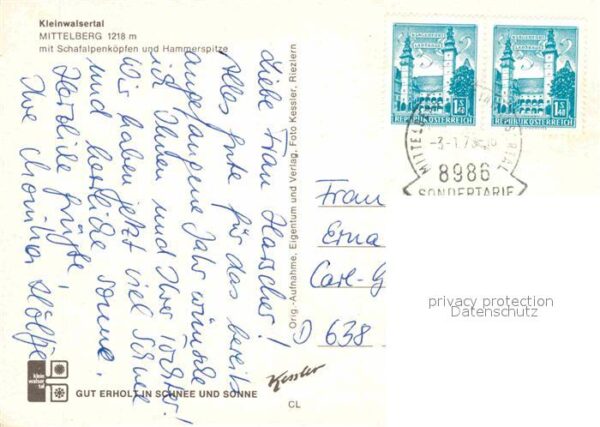 Kleinwalsertal
MITTELBERG 1218 m
mit Schafalpenköpfen und Hammerspitze
Liebe Frau Harscher!
Alles Gute für das bereits
angefangene Jahr wünsche
ich Ihnen und Ihrer Tochter!
Wir haben jetzt viel Schnee
und herrliche Sonne.
Herzliche Grüße,
Ihre
Orig.-Aufnahme, Eigentum und Verlag, Foto Kessler, Riezlern
S 1.40
REPUBLIK ÖSTERREICH
S 1.40
REPUBLIK ÖSTERREICH
8986
SONDERTARIF
Frau
Erna
Carl-G
D 638
privacy protection
Datenschutz
klein
walser
tal
GUT ERHOLT IN SCHNEE UND SONNE
Kessler
CL